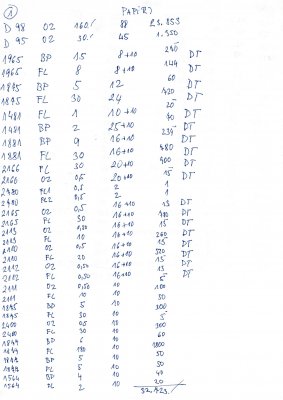 1 PAPÍR)
D 98 OZ 160.- 88 23.853
D 95 OZ 30.- 45 1.350
1965 BP 15 8+10 270 DT
1965 FL 8 8+10 144 DT
1895 BP 5 12 60
1895 FL 30 24 720 DT
1481 FL 1 10+10 20 DT
1481 BP 2 25+10 70 DT
1881 BP 9 16+10 234 DT
1881 FL 30 16+10 480 DT
2166 FL 30 20+10 900 DT
2166 OZ 0,5 20+10 15 DT
2480 FL1 0,5 2 1
2480 FL2 0,5 2 1
2165 OZ 0,5 16+10 13 DT
2165 FL 30 16+10 780 DT
2113 OZ 0,50 16+10 13 DT
2113 FL 10 16+10 260 DT
2110 OZ 0,5 16+10 13 DT
2110 FL 20 16+10 520 DT
2112 OZ 0,50 16+10 13 DT
2112 FL 0,50 16+10 13 DT
2111 OZ 0,50 10 5
2111 FL 10 10 100
1895 BP 5 10 50
1895 FL 30 10 300
2400 OZ 0,5 10 5
2400 FL 30 10 300
1899 BP 6 10 60
1899 FL 180 10 1800
1844 BP 5 10 50
1844 FL 5 10 50
1564 BP 4 10 40
1564 FL 2 10 20